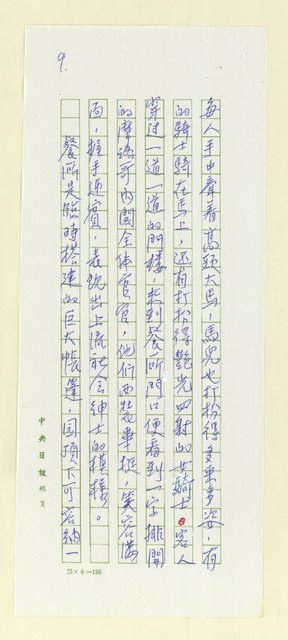 9.
每人手中牽着高頭大馬，馬兒也打扮得多采多姿，有
的騎士騎在馬上，還有打扮得艷光四射的女騎士。客人
穿过一道一道的門樓，來到餐所門口便看到一字排開
的摩洛哥內閣全体官員，他們西裝畢挺，笑容滿
面，握手迎賓，表現出上流社会紳士的模樣。
餐所是臨時搭建的巨大帳篷，圓頂下可容納一
中央日報稿箋
25×6=150